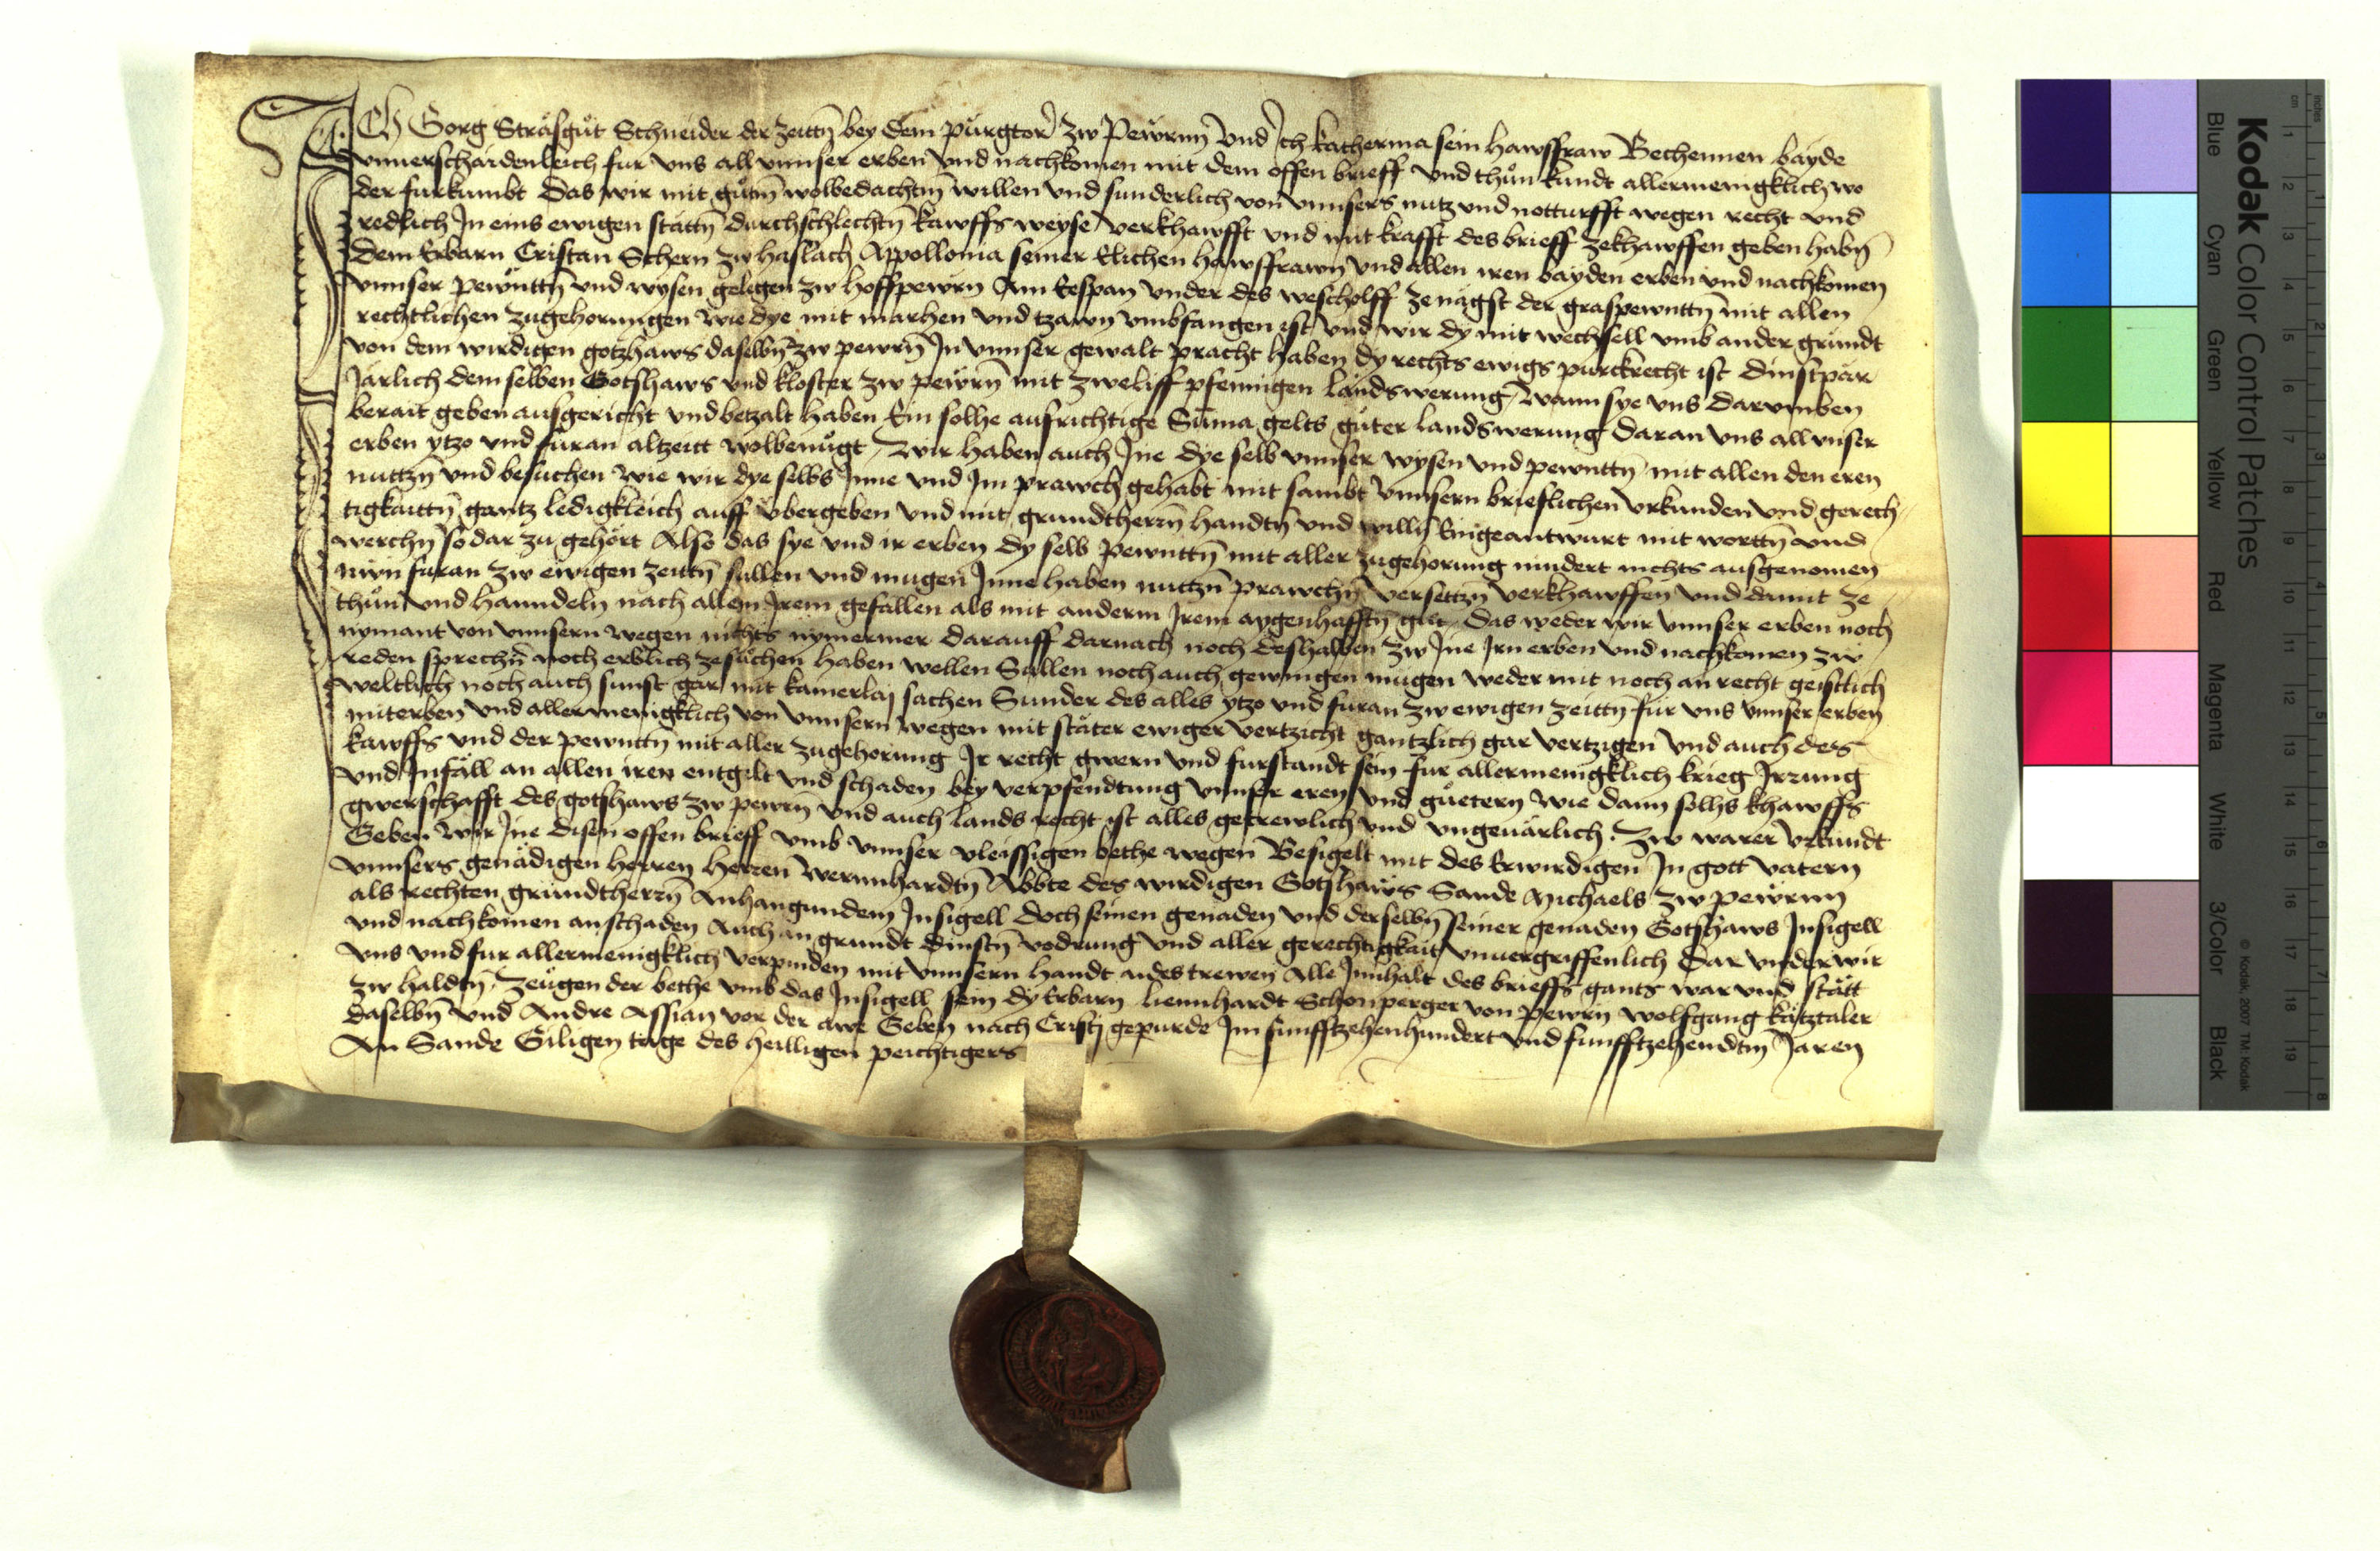 ICh Gorg Sträsgůt Schneider der zeittn̄ bey dem půrgtor zw Pewrnn vnd Ich katherina sein hawsfraw Bechennen bayde
vnuerschaidenleich fur vns all vnnser erben vnd nachkomen mit dem offen brieff vnd thůn kundt allermenigklich wo
der furkumbt Das wir mit gůtm̄ wolbedachtm̄ willen vnd sunderlich von vnnsers nutz vnd notturfft wegen recht vnd
redlich In eins ewigen stättn̄ durchschlechtn̄ kawffs weyse verkhawfft vnd mit krafft des brieff zekhawffen geben habn̄
dem Erbarn Cristan Schern zw haslach Appollonia seiner Elichen hawsfrawn vnd allen iren bayden erben vnd nachkomen
vnnser pewnttn̄ vnd wysen gelegen zw hoffpewrn Am Espan vnder des wescholff ze nägst der graspewnttn̄ mit allen
rechtlichen zugehorungen wie dye mit marhen vnd tzawn vmbfangen ist vnd wir dy mit wechsell vmb ander gründt
von dem wirdigen gotzhaws daselbn̄ zw pewrn̄ In vnnser gewalt pracht haben dy rechts ewigs purckrecht ist dinstpär
Järlich dem selben Gotshaws vnd kloster zw pewrn̄ mit zweliff pfenningen landswerung, wann sye vns darvmben
berait geben ausgericht vnd betzalt haben Ein solhe aufrichtige Sum̄a gelts gůter landswerung daran vns all vnser
erben ytzo vnd furan altzeitt wolbenůgt, Wir haben auch Ine dye selb vnnser wysen vnd pewnttn̄ mit allen den eren
nuttzn̄ vnd besuchen wie wir dye selbs Inne vnd Im prawch gehabt mit sambt vnnsern brieflichen vrkunden vnd gerech
tigkaittn̄ gantz ledigkleich auff vbergeben vnd mit grundtherrn̄ handtn̄ vnd willn̄ Eingeantwurt mit worttn̄ vnd
werchn̄ so dar zu gehört Also das sye vnd ir erben dy selb pewnttn̄ mit aller zugehorung nindert nichts ausgenomen
nwn furan zw ewigen zeittn̄ sullen vnd mugen Inne haben nutzn̄ prawchn̄ versettzn̄ verkhawffen vnd damit ze
thůn vnd hanndeln nach allem Irem gefallen als mit anderm Irem aygenhafftn̄ gůt, Das weder wir vnnser erben noch
nymant von vnnsern wegen nichts nymermer darauff darnach noch deshalben zw Ine Irn erben vnd nachkomen zw
reden sprechn̄ noch erblich zesůchen haben wellen Sullen noch auch gewingen mugen weder mit noch an recht geistlich
weltlich noch auch sunst gar mit kainerlaj sachen Sunder des alles ytzo vnd furan zw ewigen zeittn̄ fur vns vnnser erben
miterben vnd allermenigklich von vnnsern wegen mit stäter ewiger vertzicht gantzlich gar vertzigen vnd auch des
kawffs vnd der pewnttn̄ mit aller zugehorung Ir recht gwern vnd furstandt sein fur allermenigklich krieg Irrung
vnd Infäll an allen iren entgelt vnd schaden bey verpfendtung vnnser eren vnd gůetern wie dann solhs khawffs
gwerschafft des gotshaws zw pewrn̄ vnd auch lands recht ist alles getrewlich vnd vngeuärlich. Zw warer vrkundt
Geben wir Ine disen offen brieff vmb vnnser vleissigen bethe wegen Besigelt mit des Erwirdigen In gott vatern
vnnsers genädigen herren herren wernnhardtn̄ Abbte des wirdigen Gotzhaws Sande Michaels zw pewrnn
als rechten grundtherrn̄ Anhangundem Insigell doch seinen genaden vnd derselbn̄ seiner genaden Gotshaws Insigell
vnd nachkomen an schaden Auch an grundt dinstn̄ vodrung vnd aller gerechtigkait vnuergriffenlich Dar vnder wir
vns vnd fur allermenigklich verpinden mit vnnsern handt aides trewen Alle Innhalt des brieffs gants war vnd stätt
zw haldtn̄, Zeůgen der bethe vmb das Insigell sein dy Erbarn liennhardt Schonperger von pewrn wolfgang kätztaler
daselbn̄ vnd Andre Assian vor der awe Geben nach Cristj gepurde Im funfftzehenhundert vnd funfftzehendtm̄ Jaren
An Sande Giligen tage des heilligen peichtigers
Kodak Color Control Patches
Blue Cyan Green Yellow Red Magenta White 3/Color Black
© Kodak, 2007 TM: Kodak
cm 1 2 3 4 5 6 7 8 9 10 11 12 13 14 15 16 17 18 19
inches 1 2 3 4 5 6 7 8